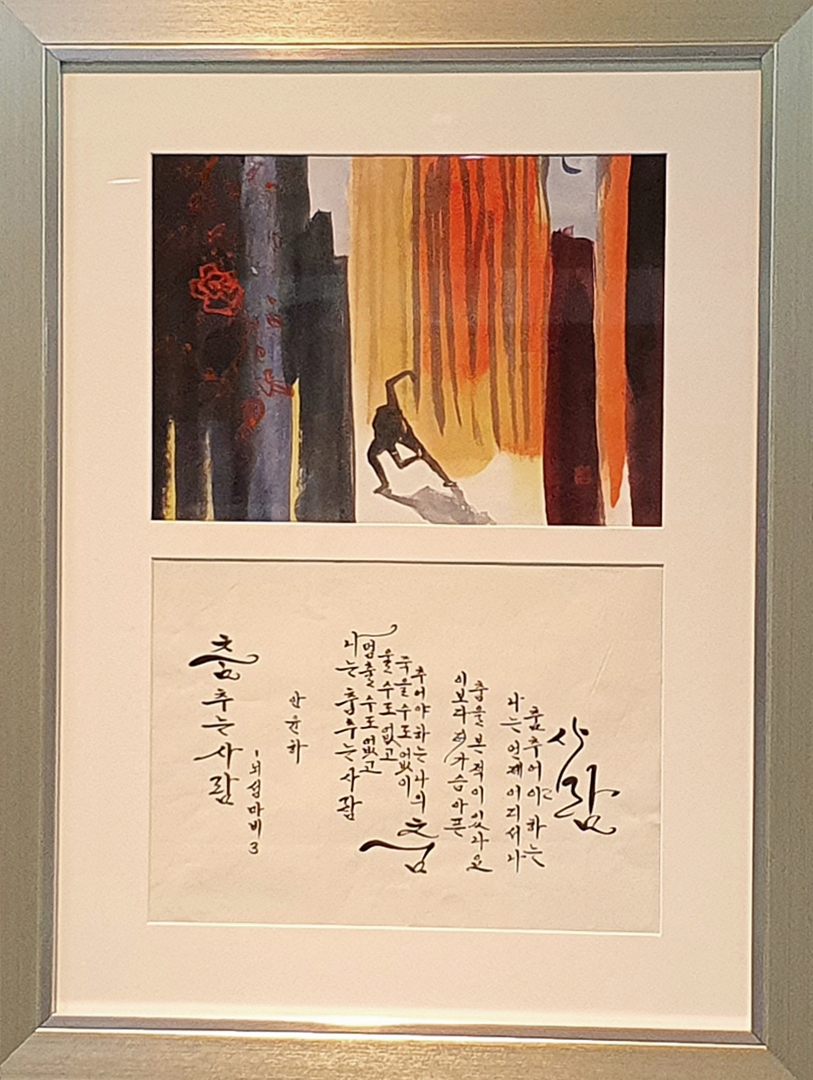 춤추는 사람
-뇌성마비 3
안윤하
나는 춤추는 사람
멈출 수도 없고
울 수도 없고
죽을 수도 없이
추어야 하는 나의
춤
이보다 더 가슴 아픈
춤을 본 적이 있나요
나는 언제 어디서나
춤추어야 하는
사람